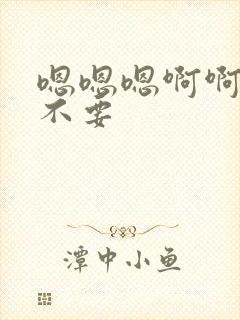 嗯嗯嗯啊啊
不要
潭中小鱼